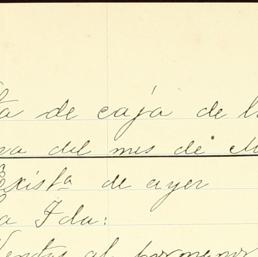 ta de caja de l
va del mes de M
Exist.ª de ayer
a Fda:
Ventas al pormenor